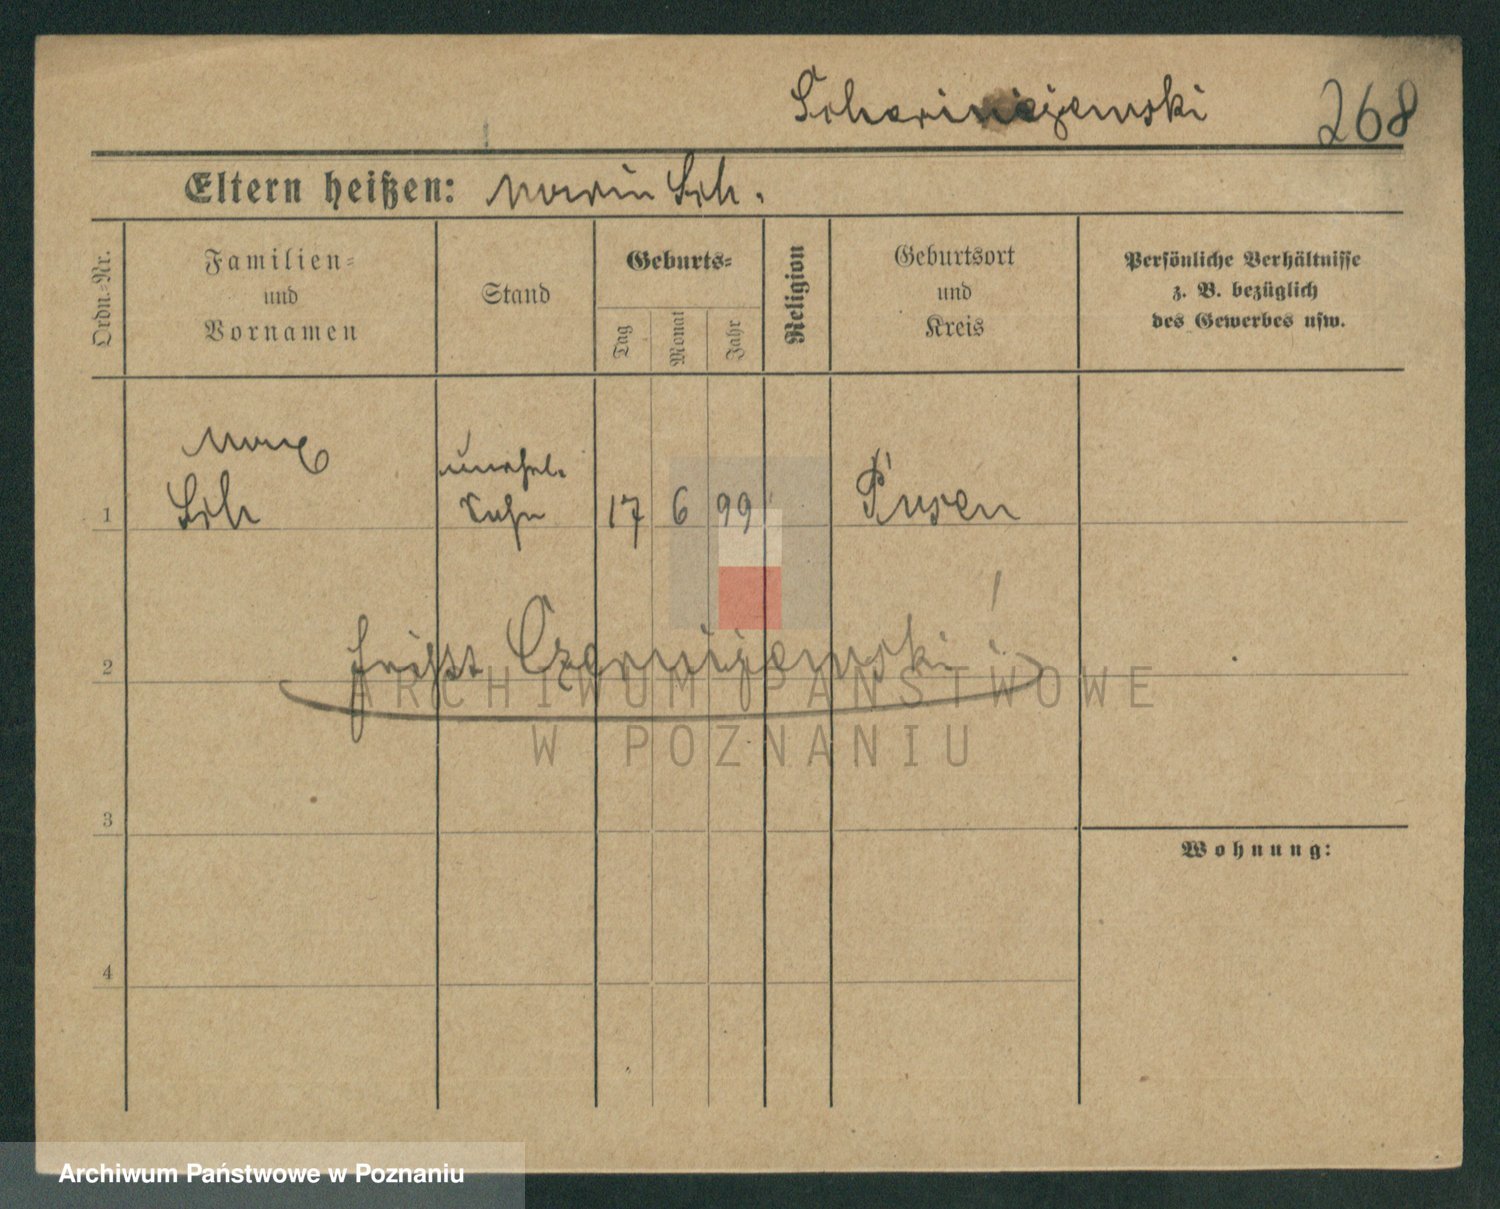 Scherniejewski 268
Eltern heißen: Marie Sch.
Ordn.-Nr.
Familien-
und
Vornamen
Stand
Geburts-
Tag
Monat
Jahr
Religion
Geburtsort
und
Kreis
Persönliche Verhältnisse
z. B. bezüglich
des Gewerbes usw.
Max unehel.
1 Sch Sohn 17 6 99 Posen
2 heißt Czerniejewski !
3
Wohnung:
4
ARCHIWUM PAŃSTWOWE
W POZNANIU
Archiwum Państwowe w Poznaniu